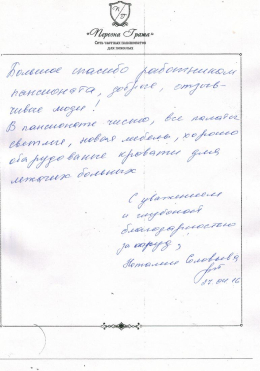 «Персона Грата»
Сеть частных пансионатов
для пожилых
Большое спасибо работникам
пансионата, добрые, отзыв-
чивые люди!
В пансионате чисто, все палаты
светлые, новая мебель, хорошо
оборудование кровати для
лежачих больных
С уважением
и глубокой
благодарностью
за труд,
Наталия Соловьева